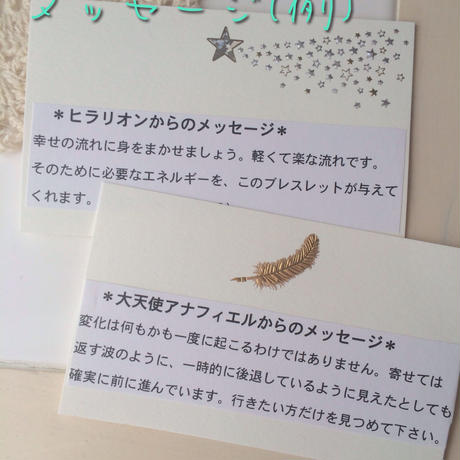 メッセージ(例)
＊ヒラリオンからのメッセージ＊
幸せの流れに身をまかせましょう。軽くて楽な流れです。
そのために必要なエネルギーを、このブレスレットが与えて
くれます。
＊大天使アナフィエルからのメッセージ＊
変化は何もかも一度に起こるわけではありません。寄せては
返す波のように、一時的に後退しているように見えたとしても
確実に前に進んでいます。行きたい方だけを見つめて下さい。